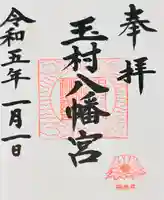 奉拝
玉村八幡宮
令和五年一月一日